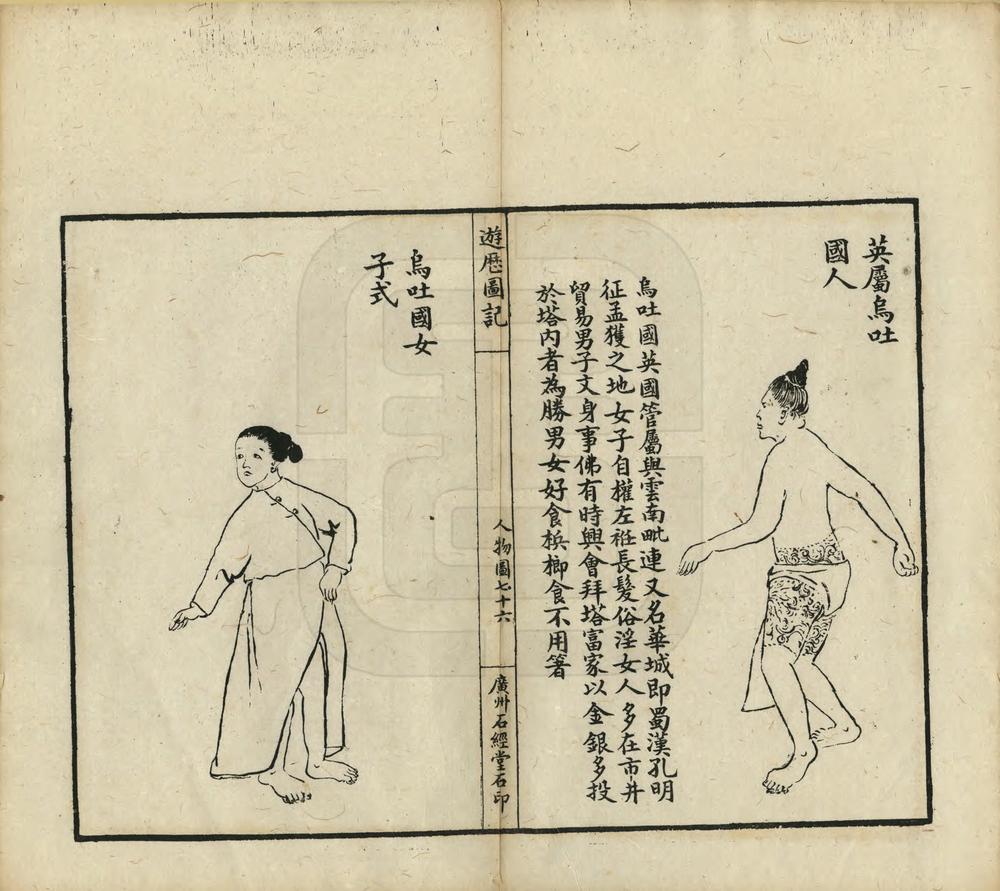 英屬烏吐
國人
烏吐國英國管屬與雲南毗連又名華城即蜀漢孔明
征孟獲之地女子自權左袵長髮俗淫女人多在市井
貿易男子文身事佛有時興會拜塔富家以金銀多投
於塔內者為勝男女好食梹榔食不用箸
遊歷圖記
人物圖七十六
廣州石經堂石印
烏吐國女
子式